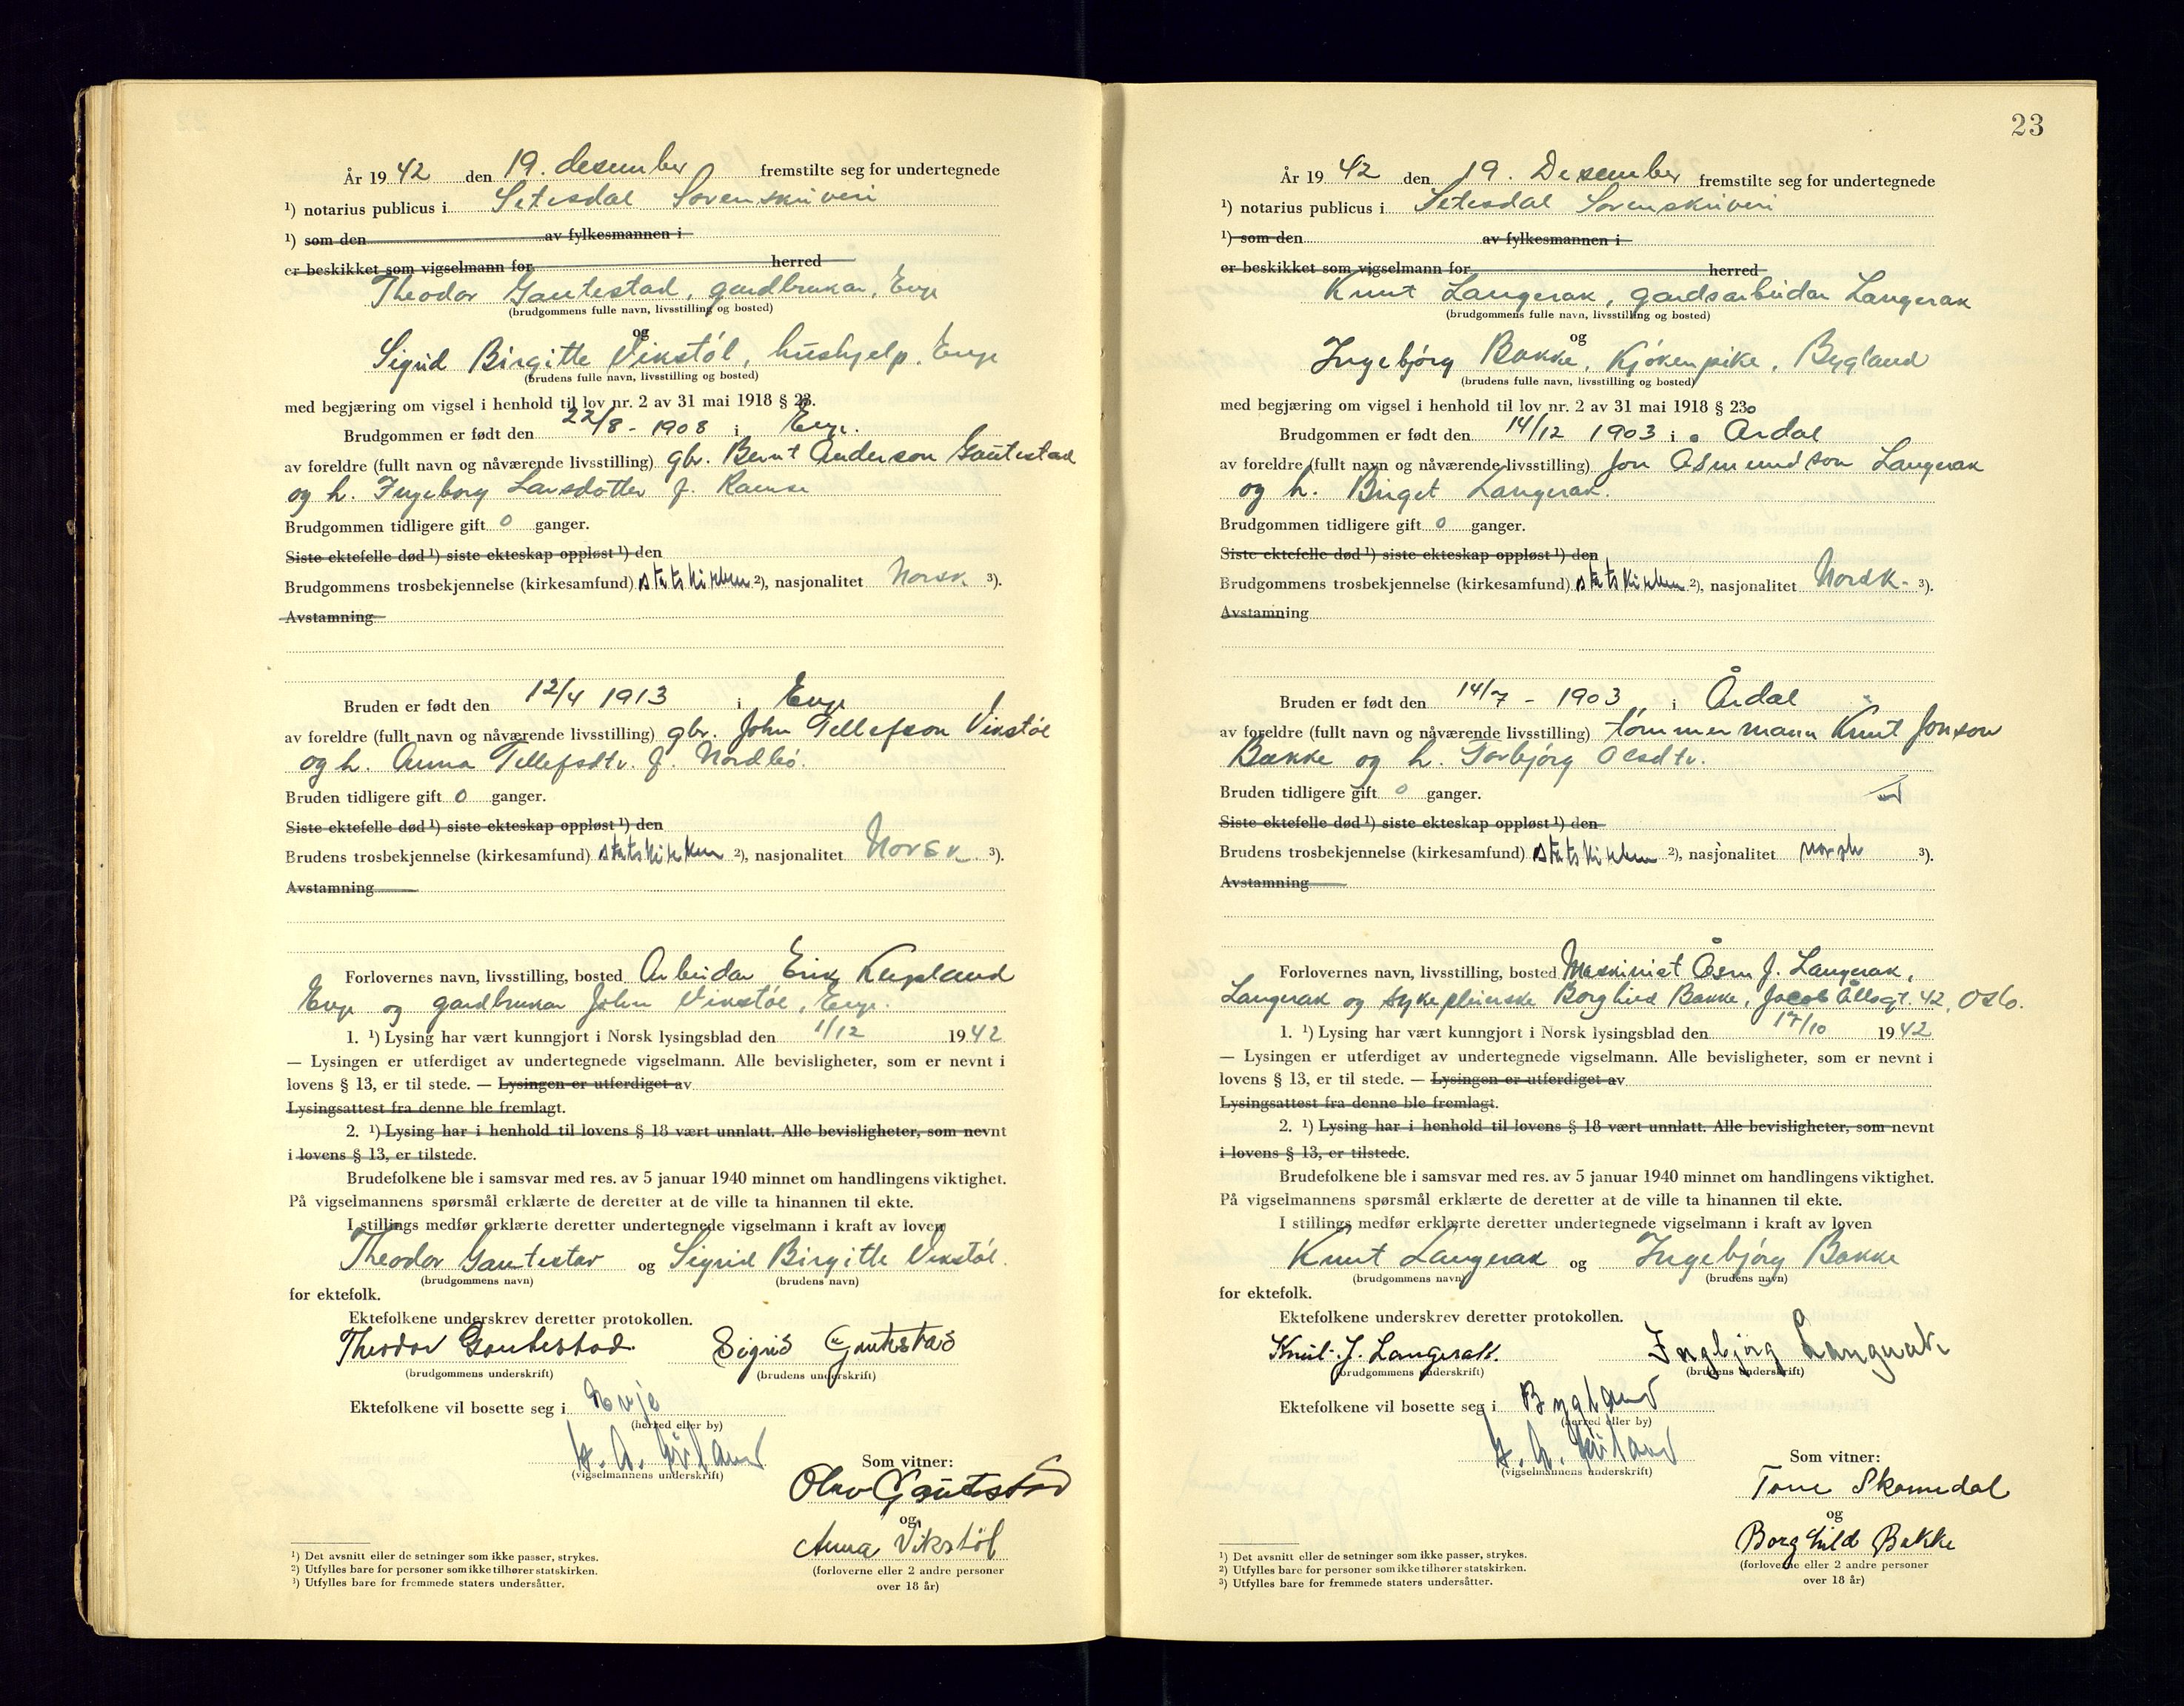 År 19 42 den 19. desember fremstilte seg for undertegnede
¹) notarius publicus i Setesdal Sorenskriveri
¹) som den av fylkesmannen i
er beskikket som vigselmann for herred
Theodor Gautestad, gardbrukar, Evje
(brudgommens fulle navn, livsstilling og bosted)
og
Sigrid Birgitte Vikstøl, hushjelp, Evje
(brudens fulle navn, livsstilling og bosted)
med begjæring om vigsel i henhold til lov nr. 2 av 31 mai 1918 § 23.
Brudgommen er født den 22/8 - 1908 i Evje.
av foreldre (fullt navn og nåværende livsstilling) gbr. Bernt Anderson Gautestad
og h. Ingeborg Larsdotter f.
Brudgommen tidligere gift 0 ganger.
Siste ektefelle død ¹) siste ekteskap oppløst ¹) den
Brudgommens trosbekjennelse (kirkesamfund) statskirken ²), nasjonalitet Norsk ³).
Avstamning
Bruden er født den 12/4 1913 i Evje
av foreldre (fullt navn og nåværende livsstilling) gbr. John Tellefson Vikstøl
og h. Anna Tellefsdtr. f. Nordbø.
Bruden tidligere gift 0 ganger.
Siste ektefelle død ¹) siste ekteskap oppløst ¹) den
Brudens trosbekjennelse (kirkesamfund) statskirken ²), nasjonalitet Norsk ³).
Avstamning
Forlovernes navn, livsstilling, bosted Arbeidar Erik
Evje og gardbrukar John Vikstøl, Evje.
1. ¹) Lysing har vært kunngjort i Norsk lysingsblad den 1/12 19 42
— Lysingen er utferdiget av undertegnede vigselmann. Alle bevisligheter, som er nevnt i
lovens § 13, er til stede. — Lysingen er utferdiget av
Lysingsattest fra denne ble fremlagt.
2. ¹) Lysing har i henhold til lovens § 18 vært unnlatt. Alle bevisligheter, som nevnt
i lovens § 13, er tilstede.
Brudefolkene ble i samsvar med res. av 5 januar 1940 minnet om handlingens viktighet.
På vigselmannens spørsmål erklærte de deretter at de ville ta hinannen til ekte.
I stillings medfør erklærte deretter undertegnede vigselmann i kraft av loven
Theodor Gautestad og Sigrid Birgitte Vikstøl.
(brudgommens navn) (brudens navn)
for ektefolk.
Ektefolkene underskrev deretter protokollen.
Theodor Gautestad. Sigrid Gautestad
(brudgommens underskrift) (brudens underskrift)
Ektefolkene vil bosette seg i Evje
(herred eller by)
(vigselmannens underskrift)
Som vitner:
Olav Gautestad
og
Anna Vikstøl
(forloverne eller 2 andre personer
over 18 år)
¹) Det avsnitt eller de setninger som ikke passer, strykes.
²) Utfylles bare for personer som ikke tilhører statskirken.
³) Utfylles bare for fremmede staters undersåtter.
23
År 19 42 den 19. Desember fremstilte seg for undertegnede
¹) notarius publicus i Setesdal Sorenskriveri
¹) som den av fylkesmannen i
er beskikket som vigselmann for herred
Knut Langerak, gardsarbeidar Langerak
(brudgommens fulle navn, livsstilling og bosted)
og
Ingebjørg Bakke, Kjøkenpike, Bygland
(brudens fulle navn, livsstilling og bosted)
med begjæring om vigsel i henhold til lov nr. 2 av 31 mai 1918 § 23.
Brudgommen er født den 14/12 1903 i Årdal
av foreldre (fullt navn og nåværende livsstilling) Jon Åsmundson Langerak
og h. Birget Langerak.
Brudgommen tidligere gift 0 ganger.
Siste ektefelle død ¹) siste ekteskap oppløst ¹) den
Brudgommens trosbekjennelse (kirkesamfund) statskirken ²), nasjonalitet Norsk - ³).
Avstamning
Bruden er født den 14/7 - 1903 i Årdal
av foreldre (fullt navn og nåværende livsstilling) tømmermann Knut Jonson
Bakke og h. Torbjørg Olsdtr.
Bruden tidligere gift 0 ganger.
Siste ektefelle død ¹) siste ekteskap oppløst ¹) den
Brudens trosbekjennelse (kirkesamfund) statskirken ²), nasjonalitet norsk ³).
Avstamning
Forlovernes navn, livsstilling, bosted Maskinist Åsm J. Langerak,
Langerak og sykepleierske Borghild Bakke, Jacob Ållsgt. 42, Oslo.
1. ¹) Lysing har vært kunngjort i Norsk lysingsblad den 17/10 19 42
— Lysingen er utferdiget av undertegnede vigselmann. Alle bevisligheter, som er nevnt i
lovens § 13, er til stede. — Lysingen er utferdiget av
Lysingsattest fra denne ble fremlagt.
2. ¹) Lysing har i henhold til lovens § 18 vært unnlatt. Alle bevisligheter, som nevnt
i lovens § 13, er tilstede.
Brudefolkene ble i samsvar med res. av 5 januar 1940 minnet om handlingens viktighet.
På vigselmannens spørsmål erklærte de deretter at de ville ta hinannen til ekte.
I stillings medfør erklærte deretter undertegnede vigselmann i kraft av loven
Knut Langerak og Ingebjørg Bakke
(brudgommens navn) (brudens navn)
for ektefolk.
Ektefolkene underskrev deretter protokollen.
Knut J. Langerak. Ingbjørg Langerak
(brudgommens underskrift) (brudens underskrift)
Ektefolkene vil bosette seg i Bygland
(herred eller by)
(vigselmannens underskrift)
Som vitner:
Tone Skomedal
og
Borghild Bakke
(forloverne eller 2 andre personer
over 18 år)
¹) Det avsnitt eller de setninger som ikke passer, strykes.
²) Utfylles bare for personer som ikke tilhører statskirken.
³) Utfylles bare for fremmede staters undersåtter.